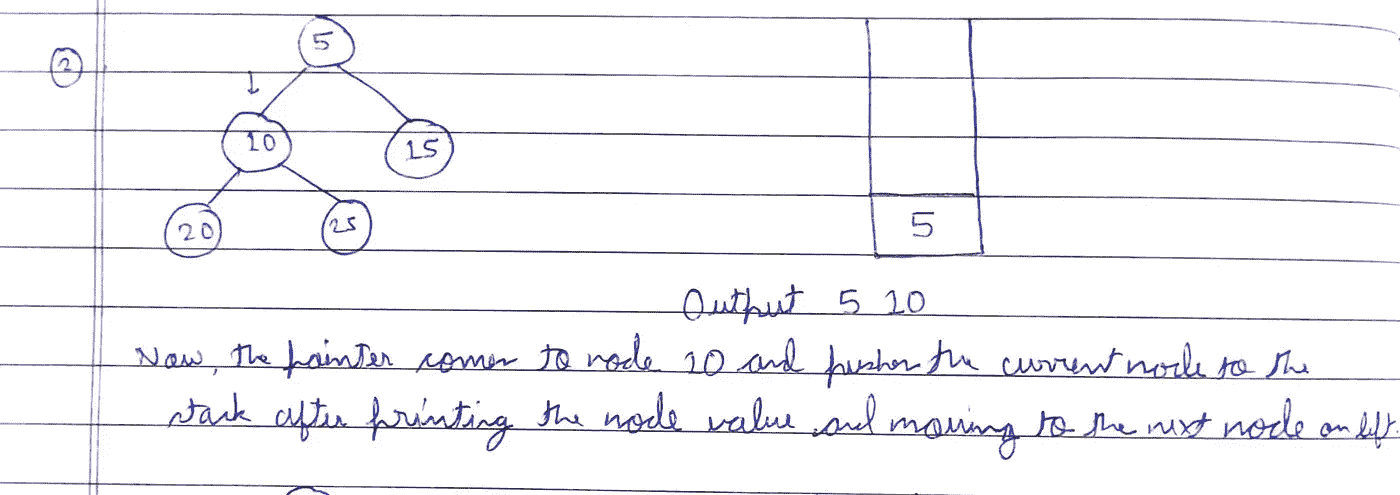 2
5
10 15
20 25
5
Output 5 10
Now, the pointer comes to node 10 and pushes the current node to the
stack after printing the node value and moving to the next node on left.